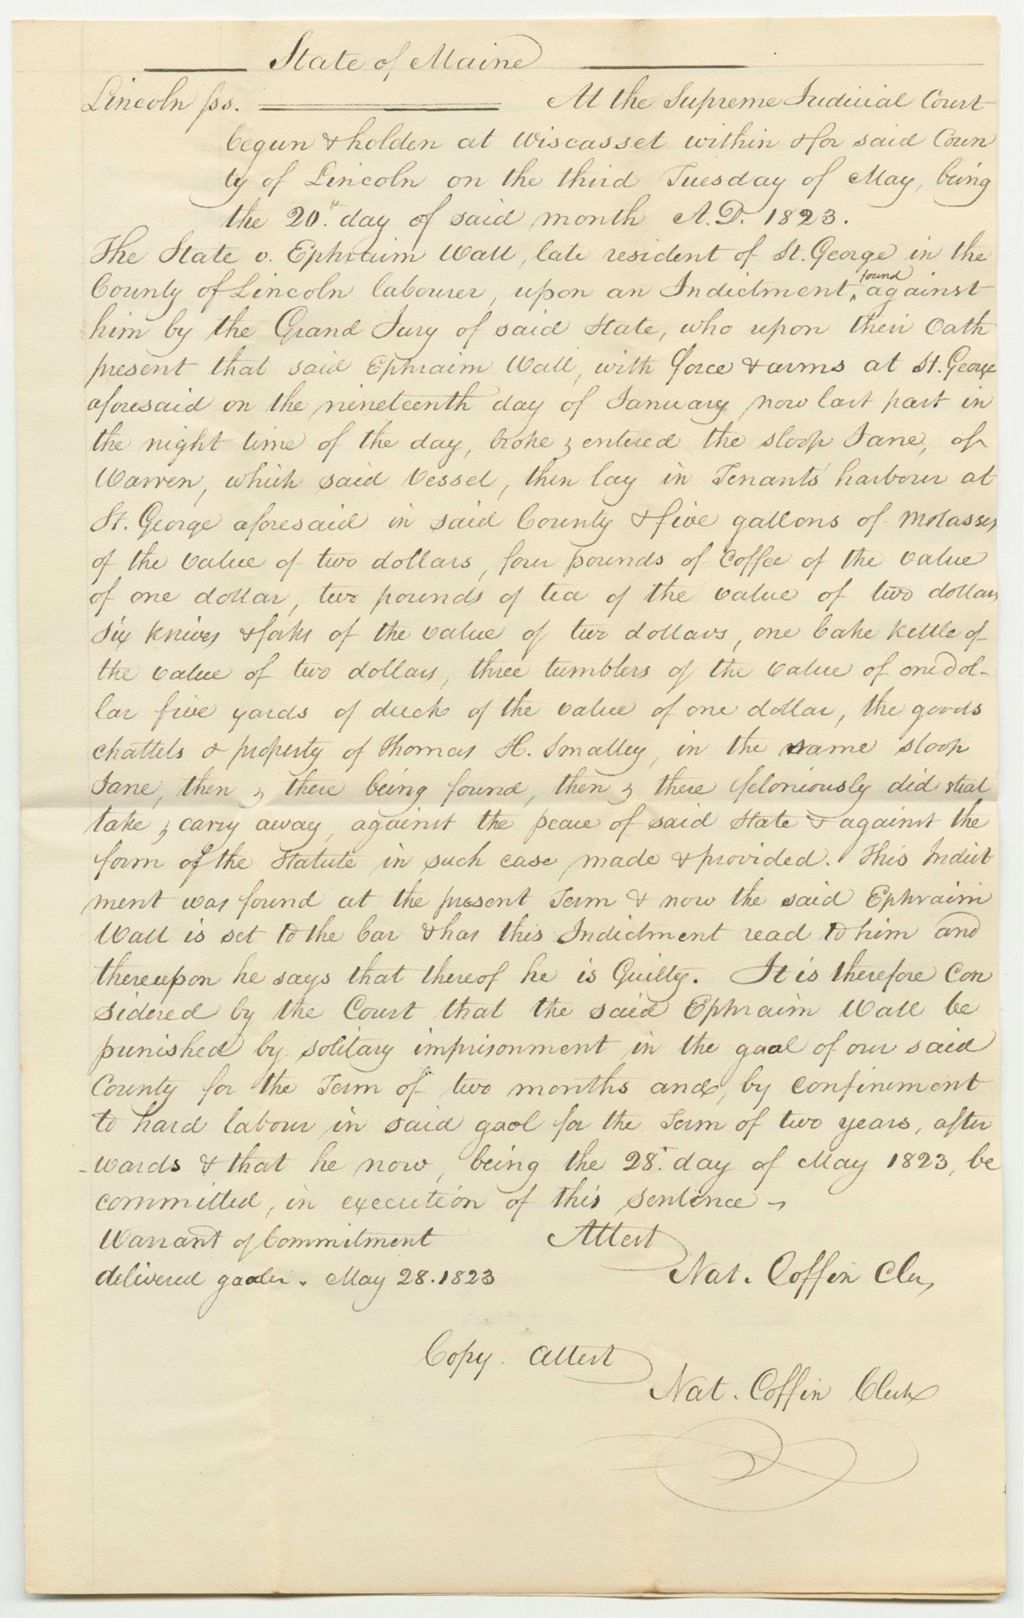 State of Maine
Lincoln ss. At the Supreme Judicial Court
begun & holden at Wiscasset within & for said Coun
ty of Lincoln on the third Tuesday of May, being
the 20th day of said month A.D. 1823.
The State v. Ephraim Wall, late resident of St. George in the
County of Lincoln labourer, upon an Indictment, found against
him by the Grand Jury of said State, who upon their Oath
present that said Ephraim Wall, with force & arms at St. George
aforesaid on the nineteenth day of January now last past in
the night time of the day, broke & entered the sloop Jane, of
Warren, which said Vessel, then lay in Tenants' harbour at
St. George aforesaid in said County & five gallons of Molasses
of the value of two dollars, four pounds of Coffee of the value
of one dollar, two pounds of tea of the value of two dollars
six knives & forks of the value of two dollars, one bake kettle of
the value of two dollars, three tumblers of the value of one dol-
lar five yards of duck of the value of one dollar, the goods
chattels & property of Thomas H. Smalley, in the same sloop
Jane, then & there being found, then & there feloniously did steal
take & carry away, against the peace of said State & against the
form of the Statute in such case made & provided. This Indict
ment was found at the present Term & now the said Ephraim
Wall is set to the bar & has this Indictment read to him and
thereupon he says that thereof he is Guilty. It is therefore Con
sidered by the Court that the said Ephraim Wall be
punished by solitary imprisonment in the gaol of our said
County for the Term of two months and, by confinement
to hard labour in said gaol for the Term of two years, after
-wards & that he now, being the 28th day of May 1823, be
committed, in execution of this sentence
Warrant of Commitment Attest
delivered gaoler. May 28. 1823 Nat. Coffin Cler,
Copy. Attest
Nat. Coffin Clerk